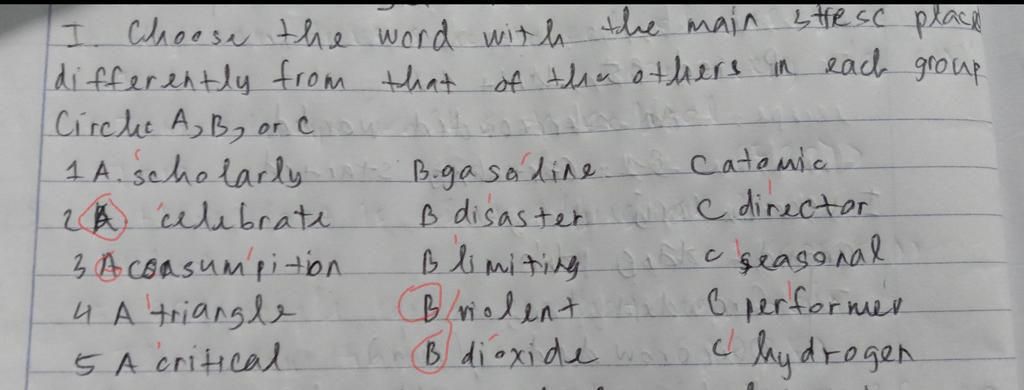 I. Choose the word with the main stresc place
differently from that of the others in each group
Circle A, B, or C
1 A. scholarly B. gasoline C atomic
2 A celebrate B disaster C director
3 A consumpition B limiting C seasonal
4 A triangle B violent C performer
5 A critical B dioxide C hydrogen